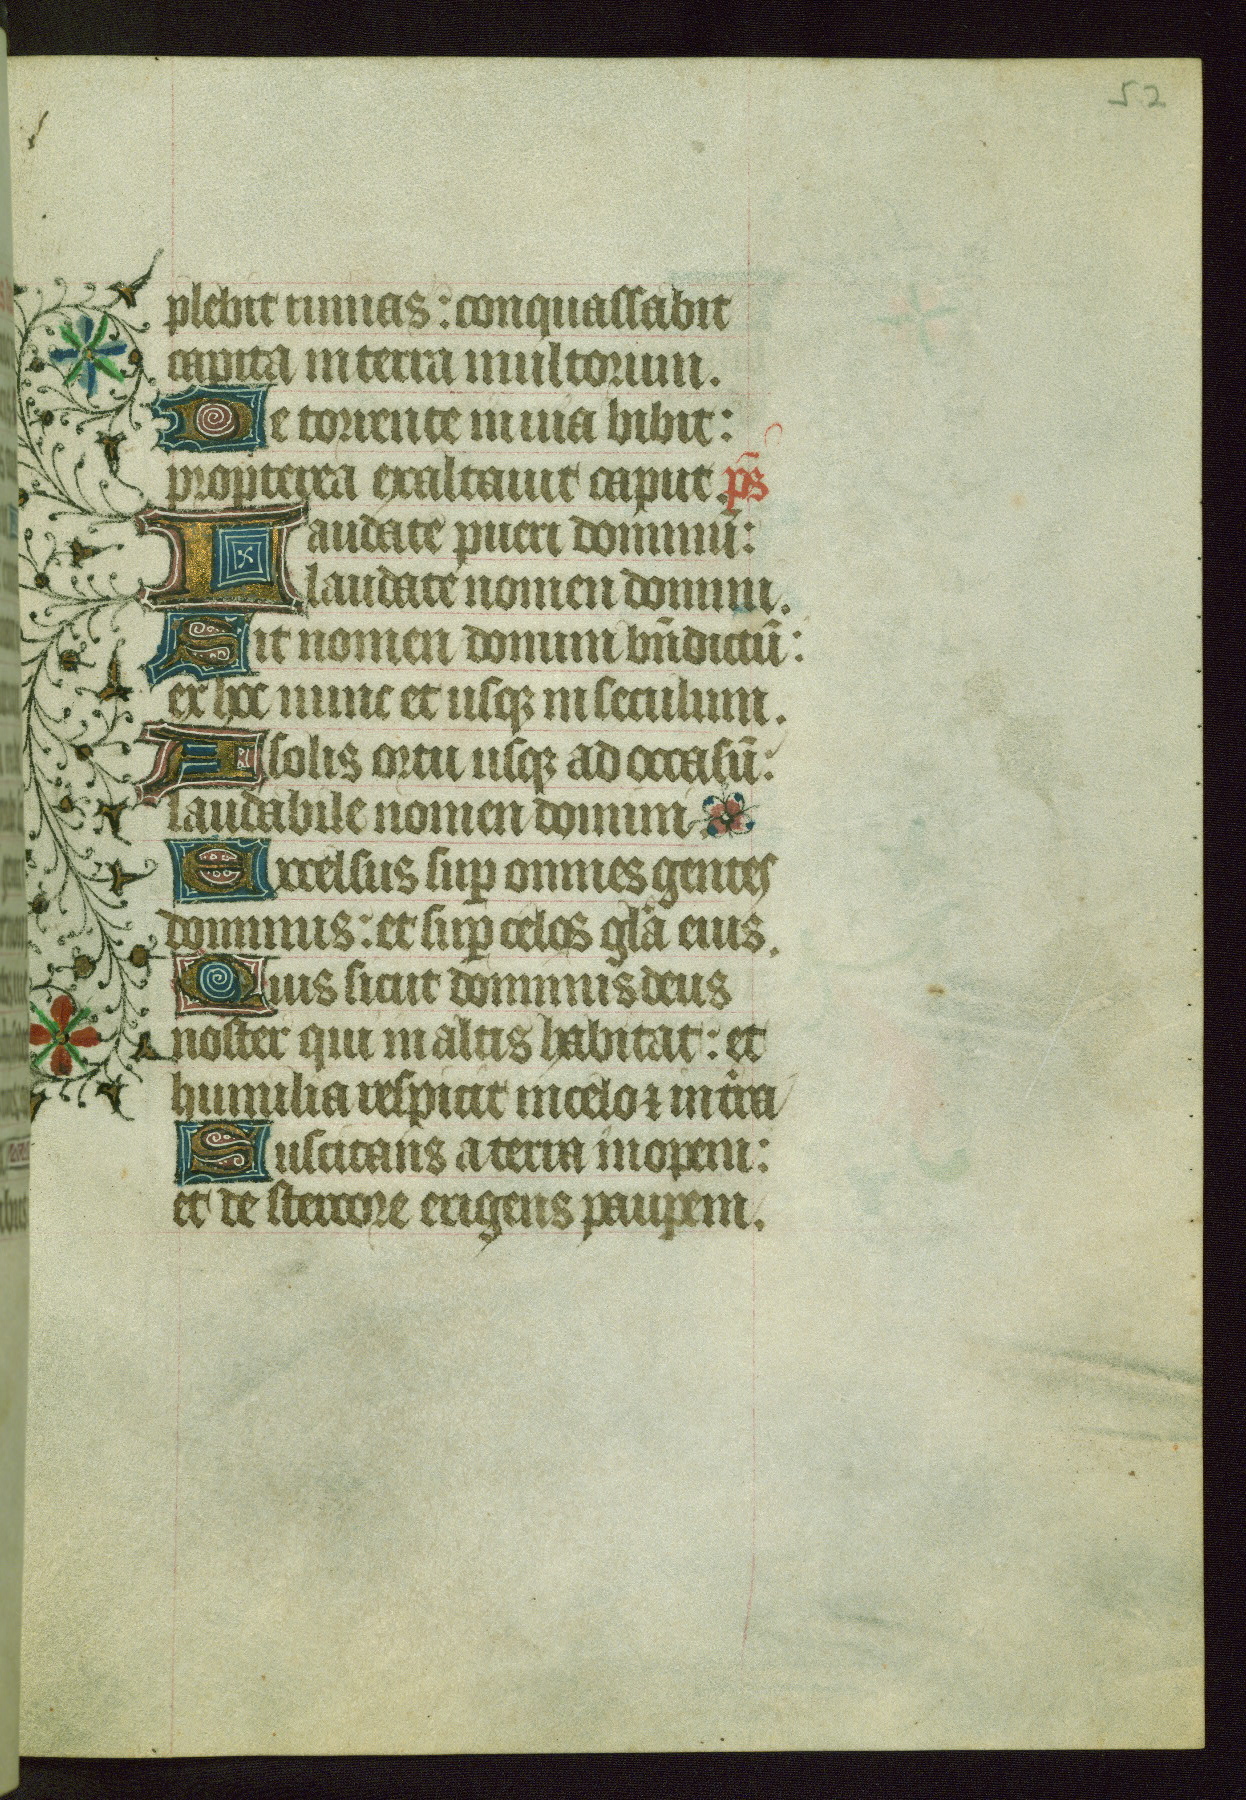 52
plebit ruinas : conquassabit
capita in terra multorum .
De torrente in via bibit :
propterea exaltavit caput . ps̄
Laudate pueri dominū :
laudate nomen domini .
Sit nomen domini bn̄dictū :
ex hoc nunc et usqꝫ in seculum .
A solis ortu usqꝫ ad occasū :
laudabile nomen domini .
Excelsus sup̄ omnes gentes
dominus : et sup̄ celos glā eius .
Quis sicut dominus deus
noster qui in altis habitat : et
humilia respicit in celo ⁊ in tr̄ra
Suscitans a terra inopem :
et de stercore erigens paup̄em .